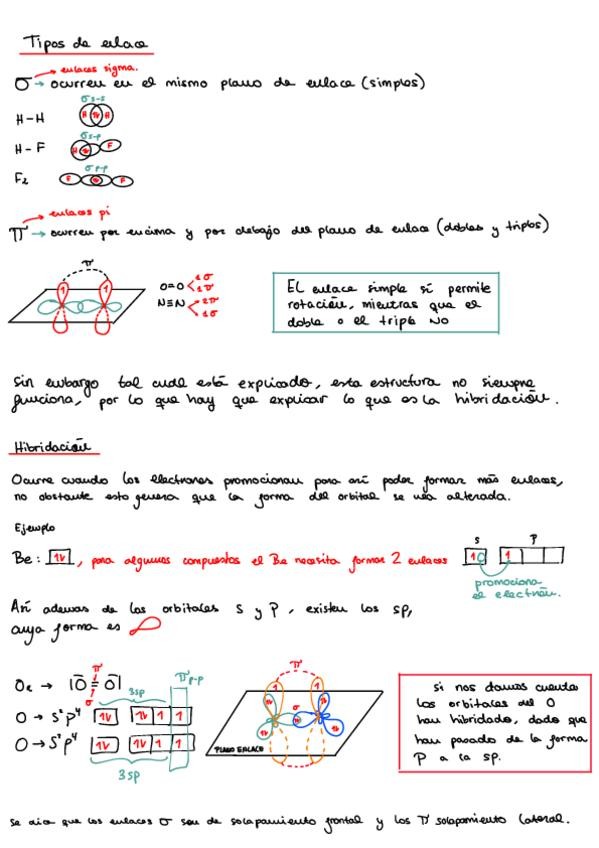 Tipos de enlace
enlaces sigma.
σ → ocurren en el mismo plano de enlace (simples)
σ s-s
H-H H 1v H
σ s-p
H-F H 1v F
σ p-p
F₂ F 1v F
enlaces pi
π → ocurren por encima y por debajo del plano de enlace (dobles y triples)
π
1 1
O=O 1σ
1π
N≡N 2π
1σ
El enlace simple sí permite
rotación, mientras que el
doble o el triple NO
Sin embargo tal cual está explicado, esta estructura no siempre
funciona, por lo que hay que explicar lo que es la hibridación.
Hibridación
Ocurre cuando los electrones promocionan para así poder formar más enlaces,
no obstante esto genera que la forma del orbital se vea alterada.
Ejemplo
Be: 1v, para algunos compuestos el Be necesita formar 2 enlaces
s p
1 1
promociona
el electrón.
Así además de los orbitales s y p, existen los sp,
cuya forma es
O₂ → |O=O|
π
σ
3sp
π p-p
O → s²p⁴ 1v 1v 1 1
O → s²p⁴ 1v 1v 1 1
3sp
π
1 1
1v 1v
σ
1v 1v
PLANO ENLACE
si nos damos cuenta
los orbitales del O
han hibridado, dado que
han pasado de la forma
P a la sp.
se dice que los enlaces σ son de solapamiento frontal y los π solapamiento lateral.